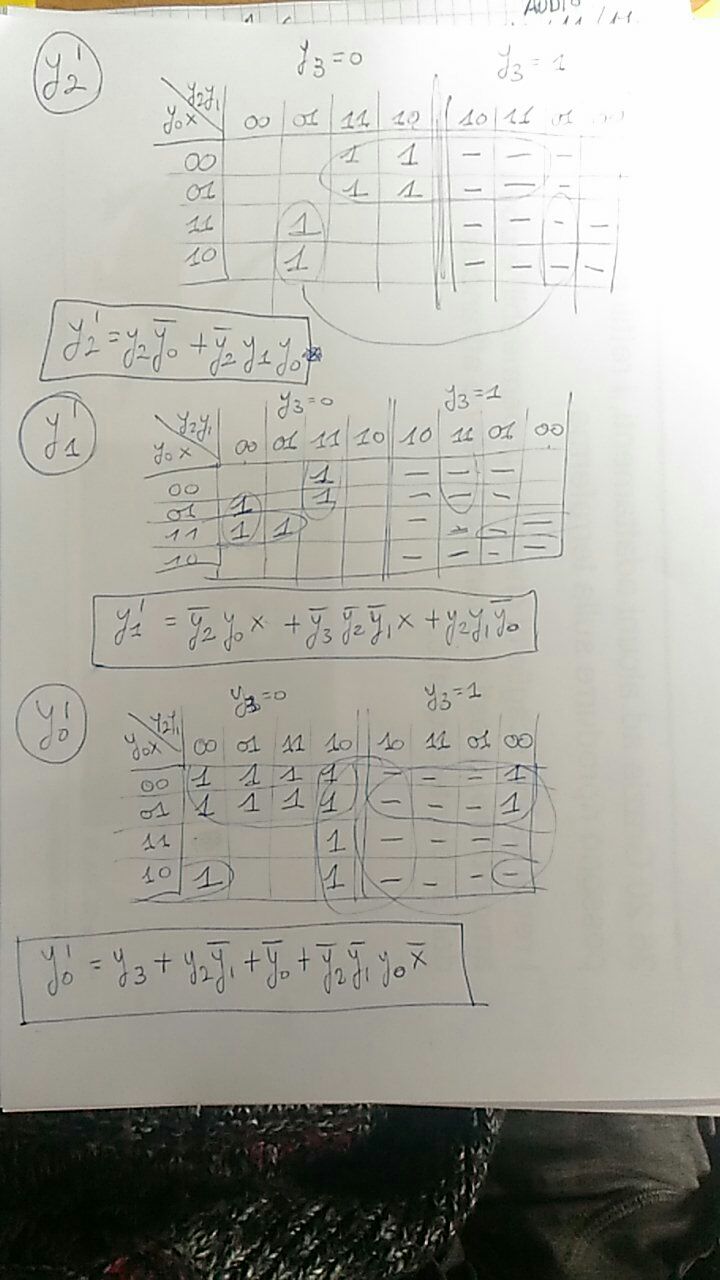 AUDIO
y₂'
y₃=0 y₃=1
y₂y₁
y₀x 00 01 11 10 10 11 01
00 1 1 – – –
01 1 1 – – –
11 1 – – – –
10 1 – – – –
y₂' = y₂y̅₀ + y̅₂ y₁ y₀
y₁'
y₃=0 y₃=1
y₂y₁
y₀x 00 01 11 10 10 11 01 00
00 1 – – –
01 1 1 – – –
11 1 1 – – – –
10 – – – –
y₁' = y̅₂ y₀ x + y̅₃ y̅₂ y̅₁ x + y₂ y₁ y̅₀
y₀'
y₃=0 y₃=1
y₂y₁
y₀x 00 01 11 10 10 11 01 00
00 1 1 1 1 – – – 1
01 1 1 1 1 – – – 1
11 1 – – – –
10 1 1 – – – –
y₀' = y₃ + y₂y̅₁ + y̅₀ + y̅₂ y̅₁ y₀ x̅